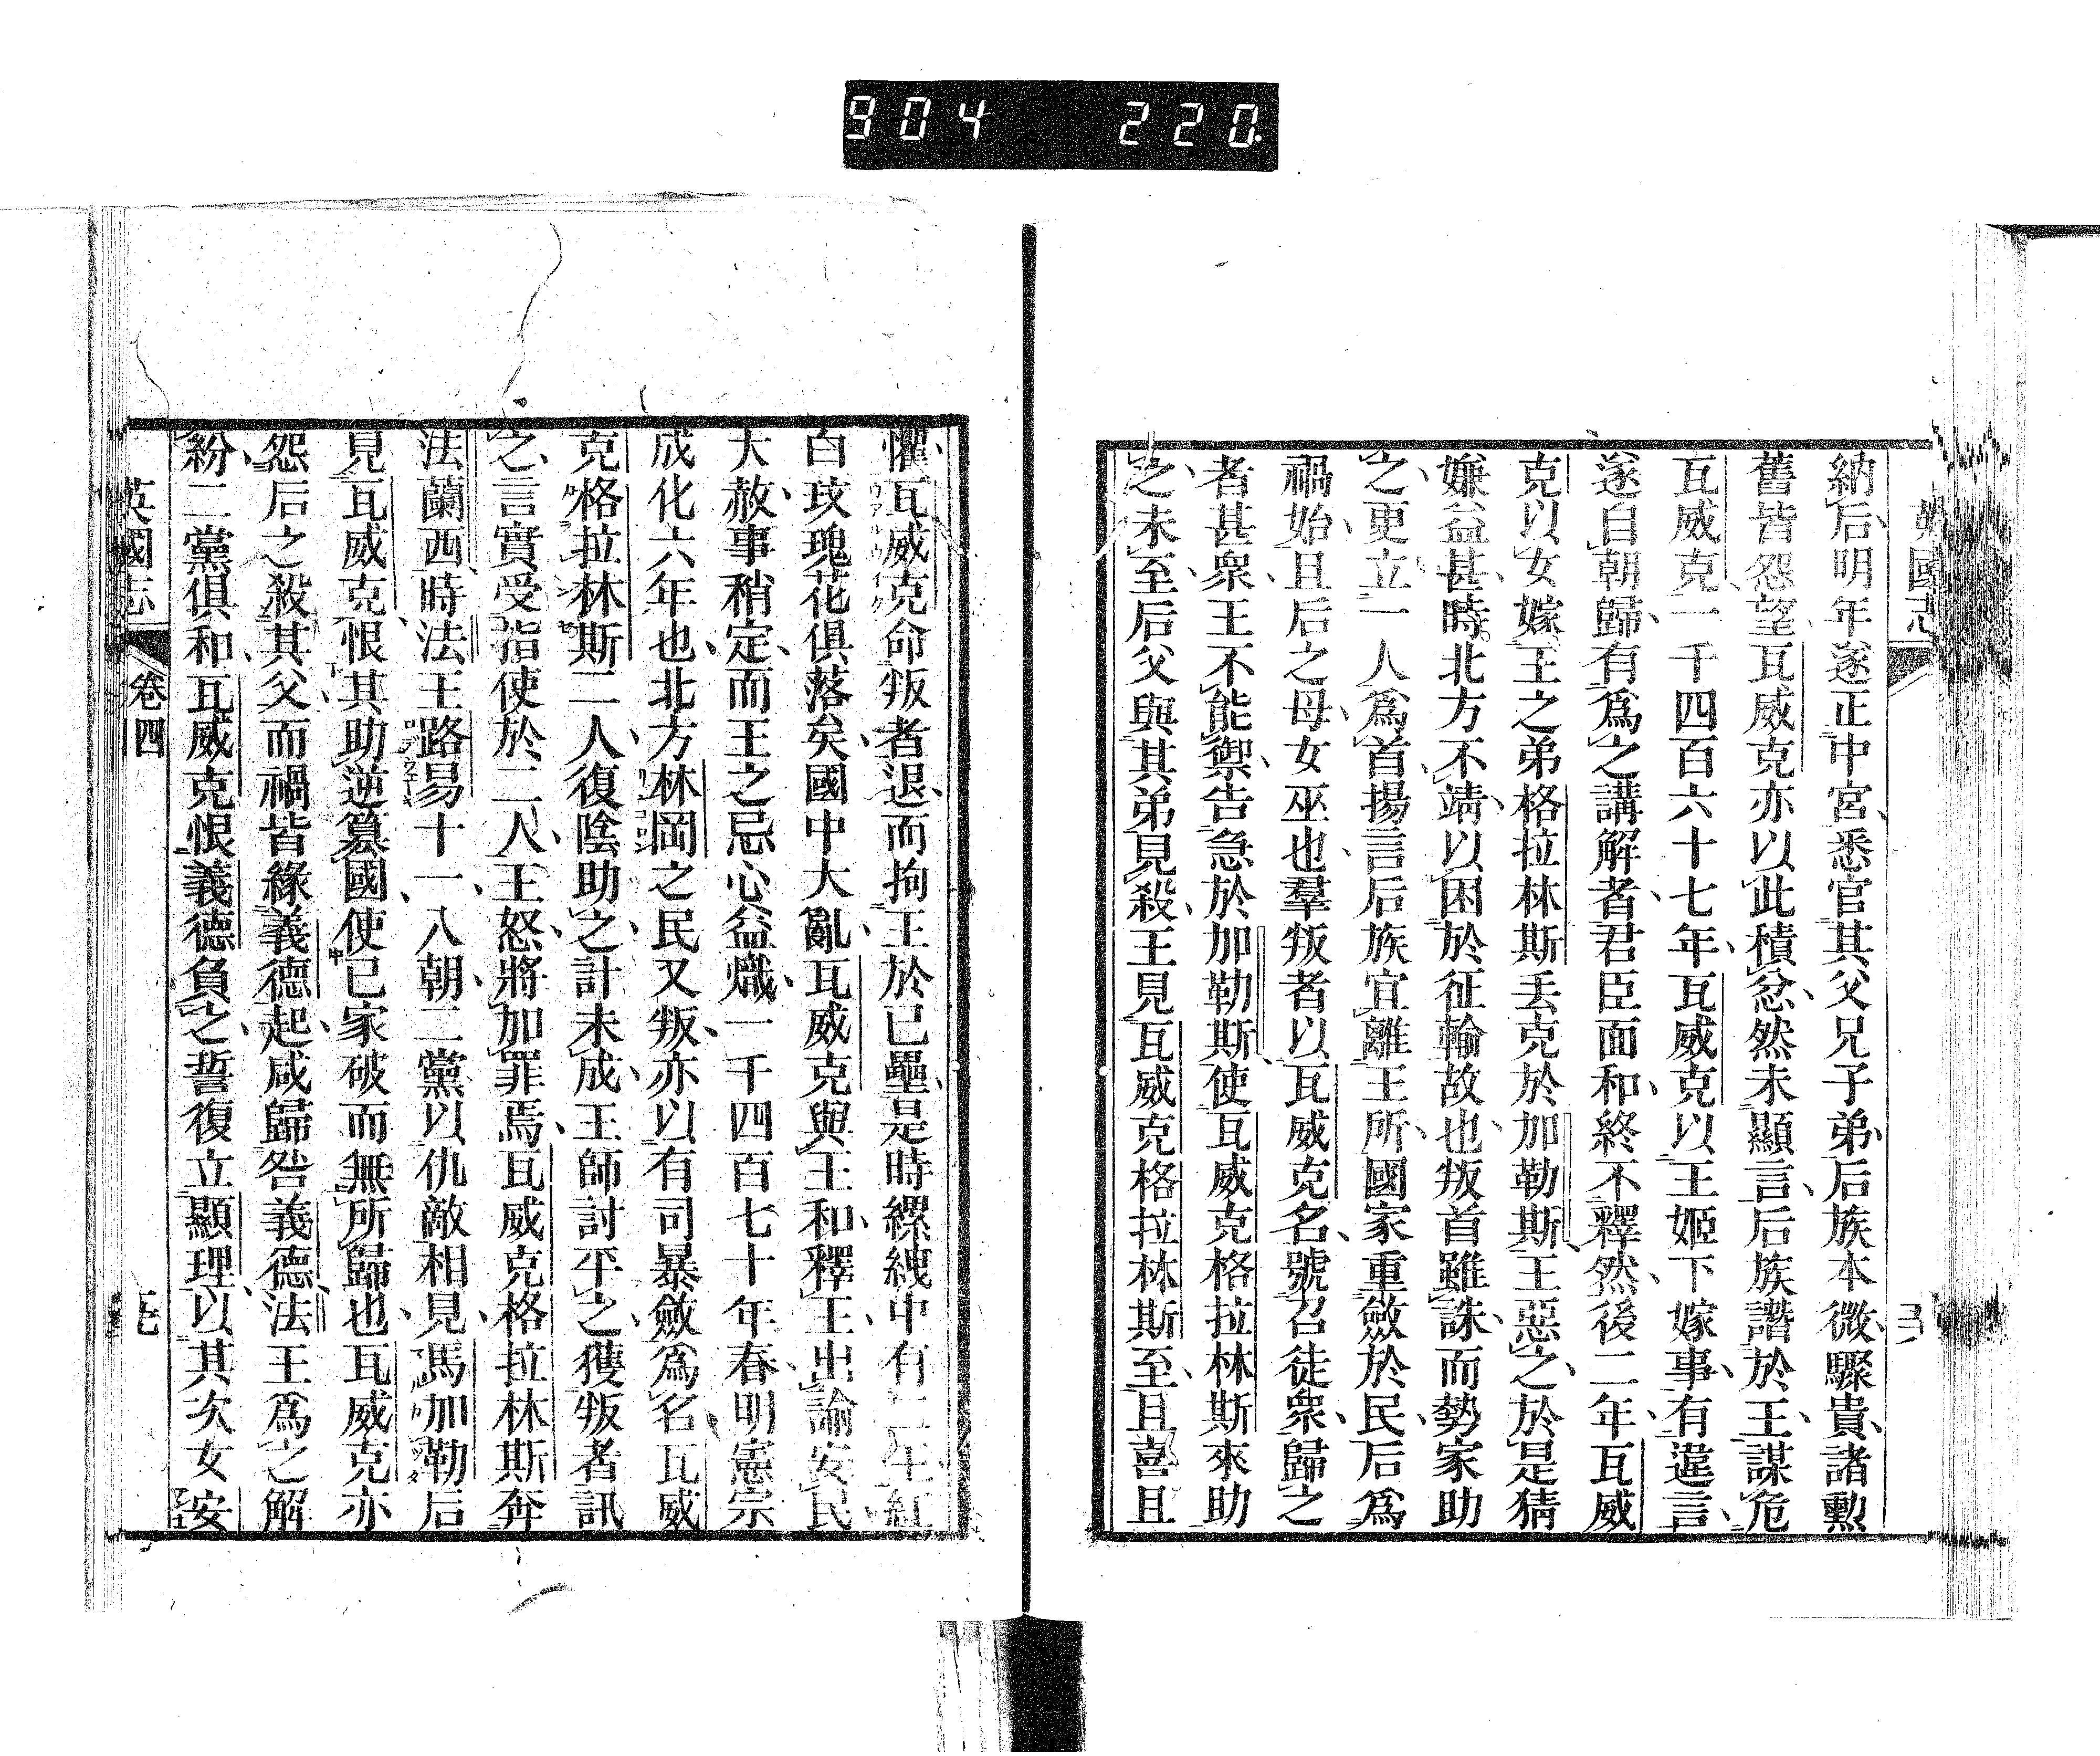 904 220
英國志
納后明年遂正中宮悉官其父兄子弟后族本微驟貴諸勲
舊皆怨望瓦威克亦以此積忿然未顯言后族譖於王謀危
瓦威克一千四百六十七年瓦威克以王姬下嫁事有違言
遂自朝歸有爲之講解者君臣面和終不釋然後二年瓦威
克以女嫁王之弟格拉林斯丢克於加勒斯王惡之於是猜
嫌益甚時北方不靖以困於征輸故也叛首雖誅而勢家助
之更立一人爲首揚言后族宜離王所國家重斂於民后爲
禍始且后之母女巫也羣叛者以瓦威克名號召徒衆歸之
者甚衆王不能禦告急於加勒斯使瓦威克格拉林斯來助
之未至后父與其弟見殺王見瓦威克格拉林斯至且喜且
懼瓦威克命叛者退而拘王於已壘是時縲絏中有二王紅
白玟瑰花俱落矣國中大亂瓦威克與王和釋王出諭安民
大赦事稍定而王之忌心益熾一千四百七十年春明憲宗
成化六年也北方林岡之民又叛亦以有司暴斂爲名瓦威
克格拉林斯二人復陰助之計未成王師討平之獲叛者訊
之言實受指使於二人王怒將加罪焉瓦威克格拉林斯奔
法蘭西時法王路易十一八朝二黨以仇敵相見馬加勒后
見瓦威克恨其助逆簒國使已家破而無所歸也瓦威克亦
怨后之殺其父而禍皆緣義德起咸歸咎義德法王爲之解
紛二黨俱和瓦威克恨義德負之誓復立顯理以其次女安
英國志 卷四